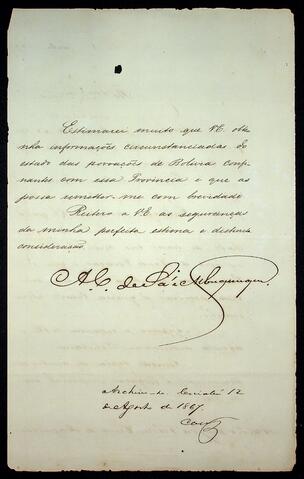 Estimarei muito que V.E. obte
nha informações circunstanciadas do
estado das povoações de Bolivia confi
nantes com essa Provincia e que as
possa remetter-me com brevidade
Reitero a V.E. as seguranças
da minha perfeita estima e distincta
consideração
A. C. de Sá e Albuquerque.
Archive-se. Cuiabá 12
de Agosto de 1867.